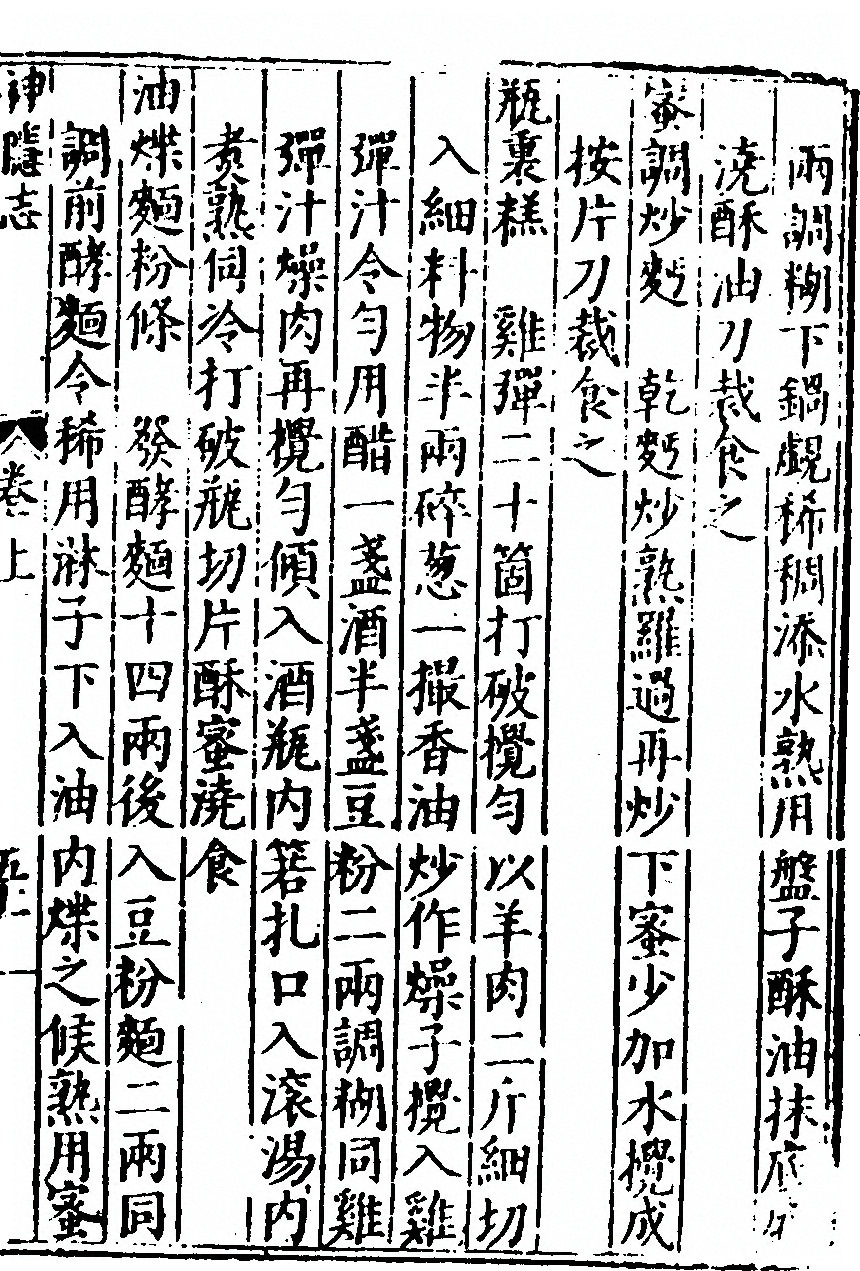 兩調糊下鍋覷稀稠添水熟用盤子酥油抹底
澆酥油刀裁食之
蜜調炒麪　乾麪炒熟羅過再炒下蜜少加水攪成
按片刀裁食之
瓶裏糕　雞彈二十箇打破攪勻以羊肉二斤細切
入細料物半兩碎葱一撮香油炒作燥子攪入雞
彈汁令勻用醋一盞酒半盞豆粉二兩調糊同雞
彈汁燥肉再攪勻傾入酒瓶内箬扎口入滾湯内
煑熟伺冷打破瓶切片酥蜜澆食
油煠麵粉條　發酵麵十四兩後入豆粉麵二兩同
調前酵麵令稀用牀子下入油内煠之候熟用蜜
神隱志　卷上